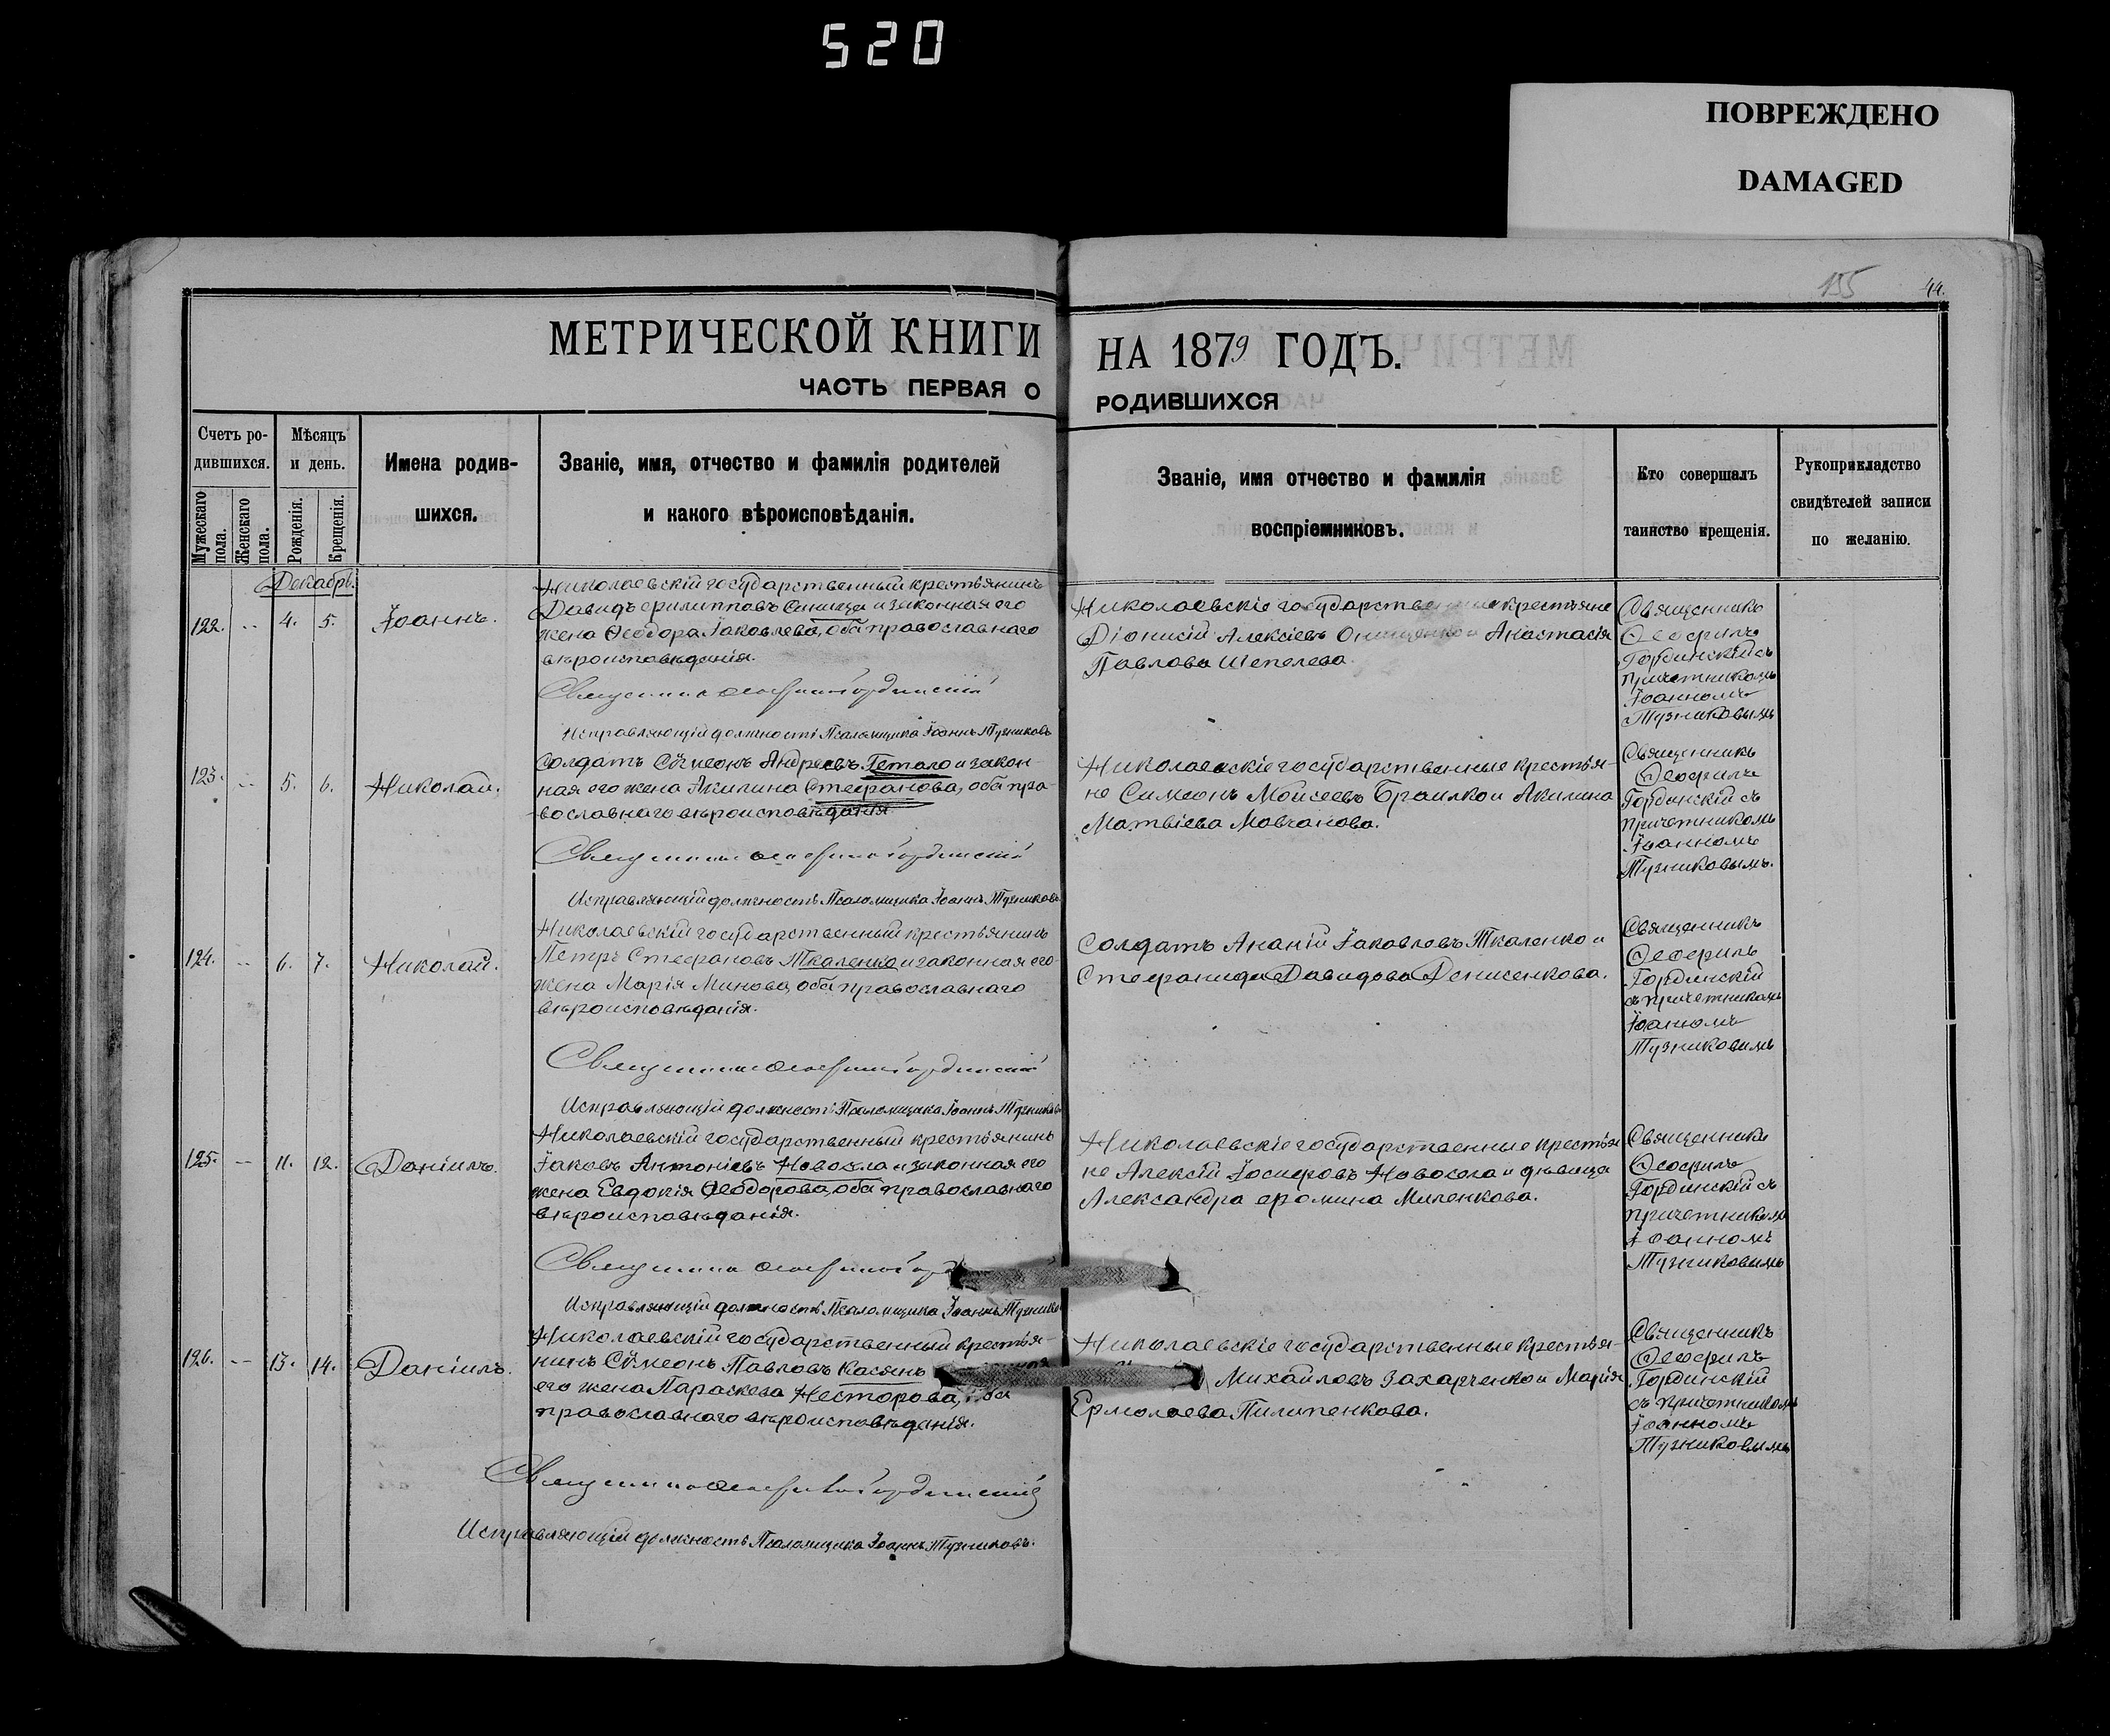 520
ПОВРЕЖДЕНО
DAMAGED
155
44.
МЕТРИЧЕСКОЙ КНИГИ НА 1879 ГОДЪ.
ЧАСТЬ ПЕРВАЯ О РОДИВШИХСЯ
Счетъ ро-
дившихся.
Мужескаго
пола.
Женскаго
пола.
Мѣсяцъ
и день.
Рожденія.
Крещенія.
Имена родив-
шихся.
Званіе, имя, отчество и фамилія родителей
и какого вѣроисповѣданія.
Званіе, имя отчество и фамилія
воспріемниковъ.
Кто совершалъ
таинство крещенія.
Рукоприкладство
свидѣтелей записи
по желанію.
Декабрь.
122. -- 4. 5. Іоаннъ.
Николаевскій государственный крестьянинъ
Давидъ Филипповъ Синица и законная его
жена Ѳеодора Іаковлева, оба православнаго
вѣроисповѣданія.
Священникъ Ѳеофилъ Гординскій
Исправляющій должность Псаломщика Іоаннъ Тузниковъ
Николаевскіе государственные крестьяне
Діонисій Алексіевъ Онищенко и Анастасія
Павлова Шепелева.
Священникъ
Ѳеофилъ
Гординскій съ
причетникомъ
Іоанномъ
Тузниковымъ
123. -- 5. 6. Николай.
Солдатъ Сѵмеонъ Андреевъ Гетало и закон-
ная его жена Акилина Стефанова, оба пра-
вославнаго вѣроисповѣданія.
Священникъ Ѳеофилъ Гординскій
Исправляющій должность Псаломщика Іоаннъ Тузниковъ
Николаевскіе государственные крестья-
не Симеонъ Моисеевъ Браилко и Акилина
Матвіева Мовчанова.
Священникъ
Ѳеофилъ
Гординскій съ
причетникомъ
Іоанномъ
Тузниковымъ.
124. -- 6. 7. Николай.
Николаевскій государственный крестьянинъ
Петръ Стефановъ Ткаленко и законная его
жена Марія Минова, оба православнаго
вѣроисповѣданія.
Священникъ Ѳеофилъ Гординскій
Исправляющій должность Псаломщика Іоаннъ Тузниковъ
Солдатъ Ананій Іаковлевъ Ткаленко и
Стефанида Давидова Денисенкова.
Священникъ
Ѳеофилъ
Гординскій
съ причетникомъ
Іоанномъ
Тузниковымъ
125. -- 11. 12. Даніилъ.
Николаевскій государственный крестьянинъ
Іаковъ Антоніевъ Новосла и законная его
жена Евдокія Ѳеодорова, оба православнаго
вѣроисповѣданія.
Священникъ Ѳеофилъ
Исправляющій должность Псаломщика Іоаннъ Тузников
Николаевскіе государственные крестья
не Алексій Іосифовъ Новосела и дѣвица
Александра Фомина Миленкова.
Священникъ
Ѳеофилъ
Гординскій съ
причетникомъ
Іоанномъ
Тузниковымъ
126. -- 13. 14. Даніилъ.
Николаевскій государственный крестья-
нинъ Сѵмеонъ Павловъ Касянъ
его жена Параскева Несторова, оба
православнаго вѣроисповѣданія.
Священникъ Ѳеофилъ Гординскій
Исправляющій должность Псаломщика Іоаннъ Тузниковъ.
Николаевскіе государственные крестья-
Михайловъ Захарченко и Марія
Ермолаева Пилипенкова.
Священникъ
Ѳеофилъ
Гординскій
съ причетникомъ
Іоанномъ
Тузниковымъ